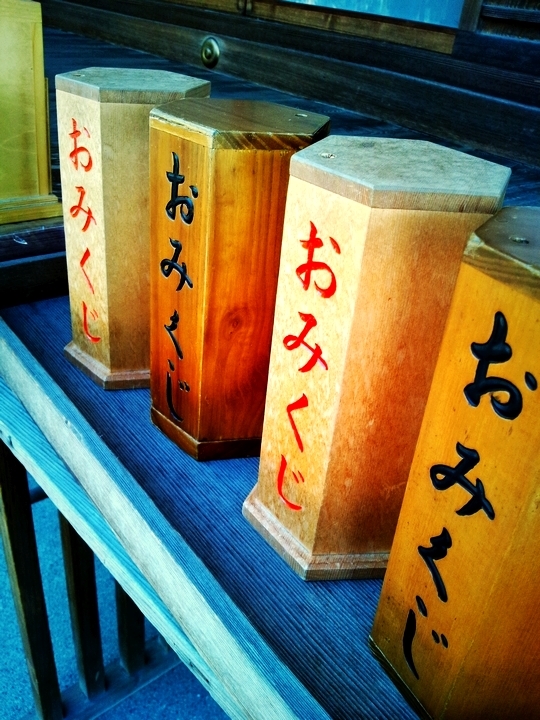 おみくじ
おみくじ
おみくじ
おみくじ